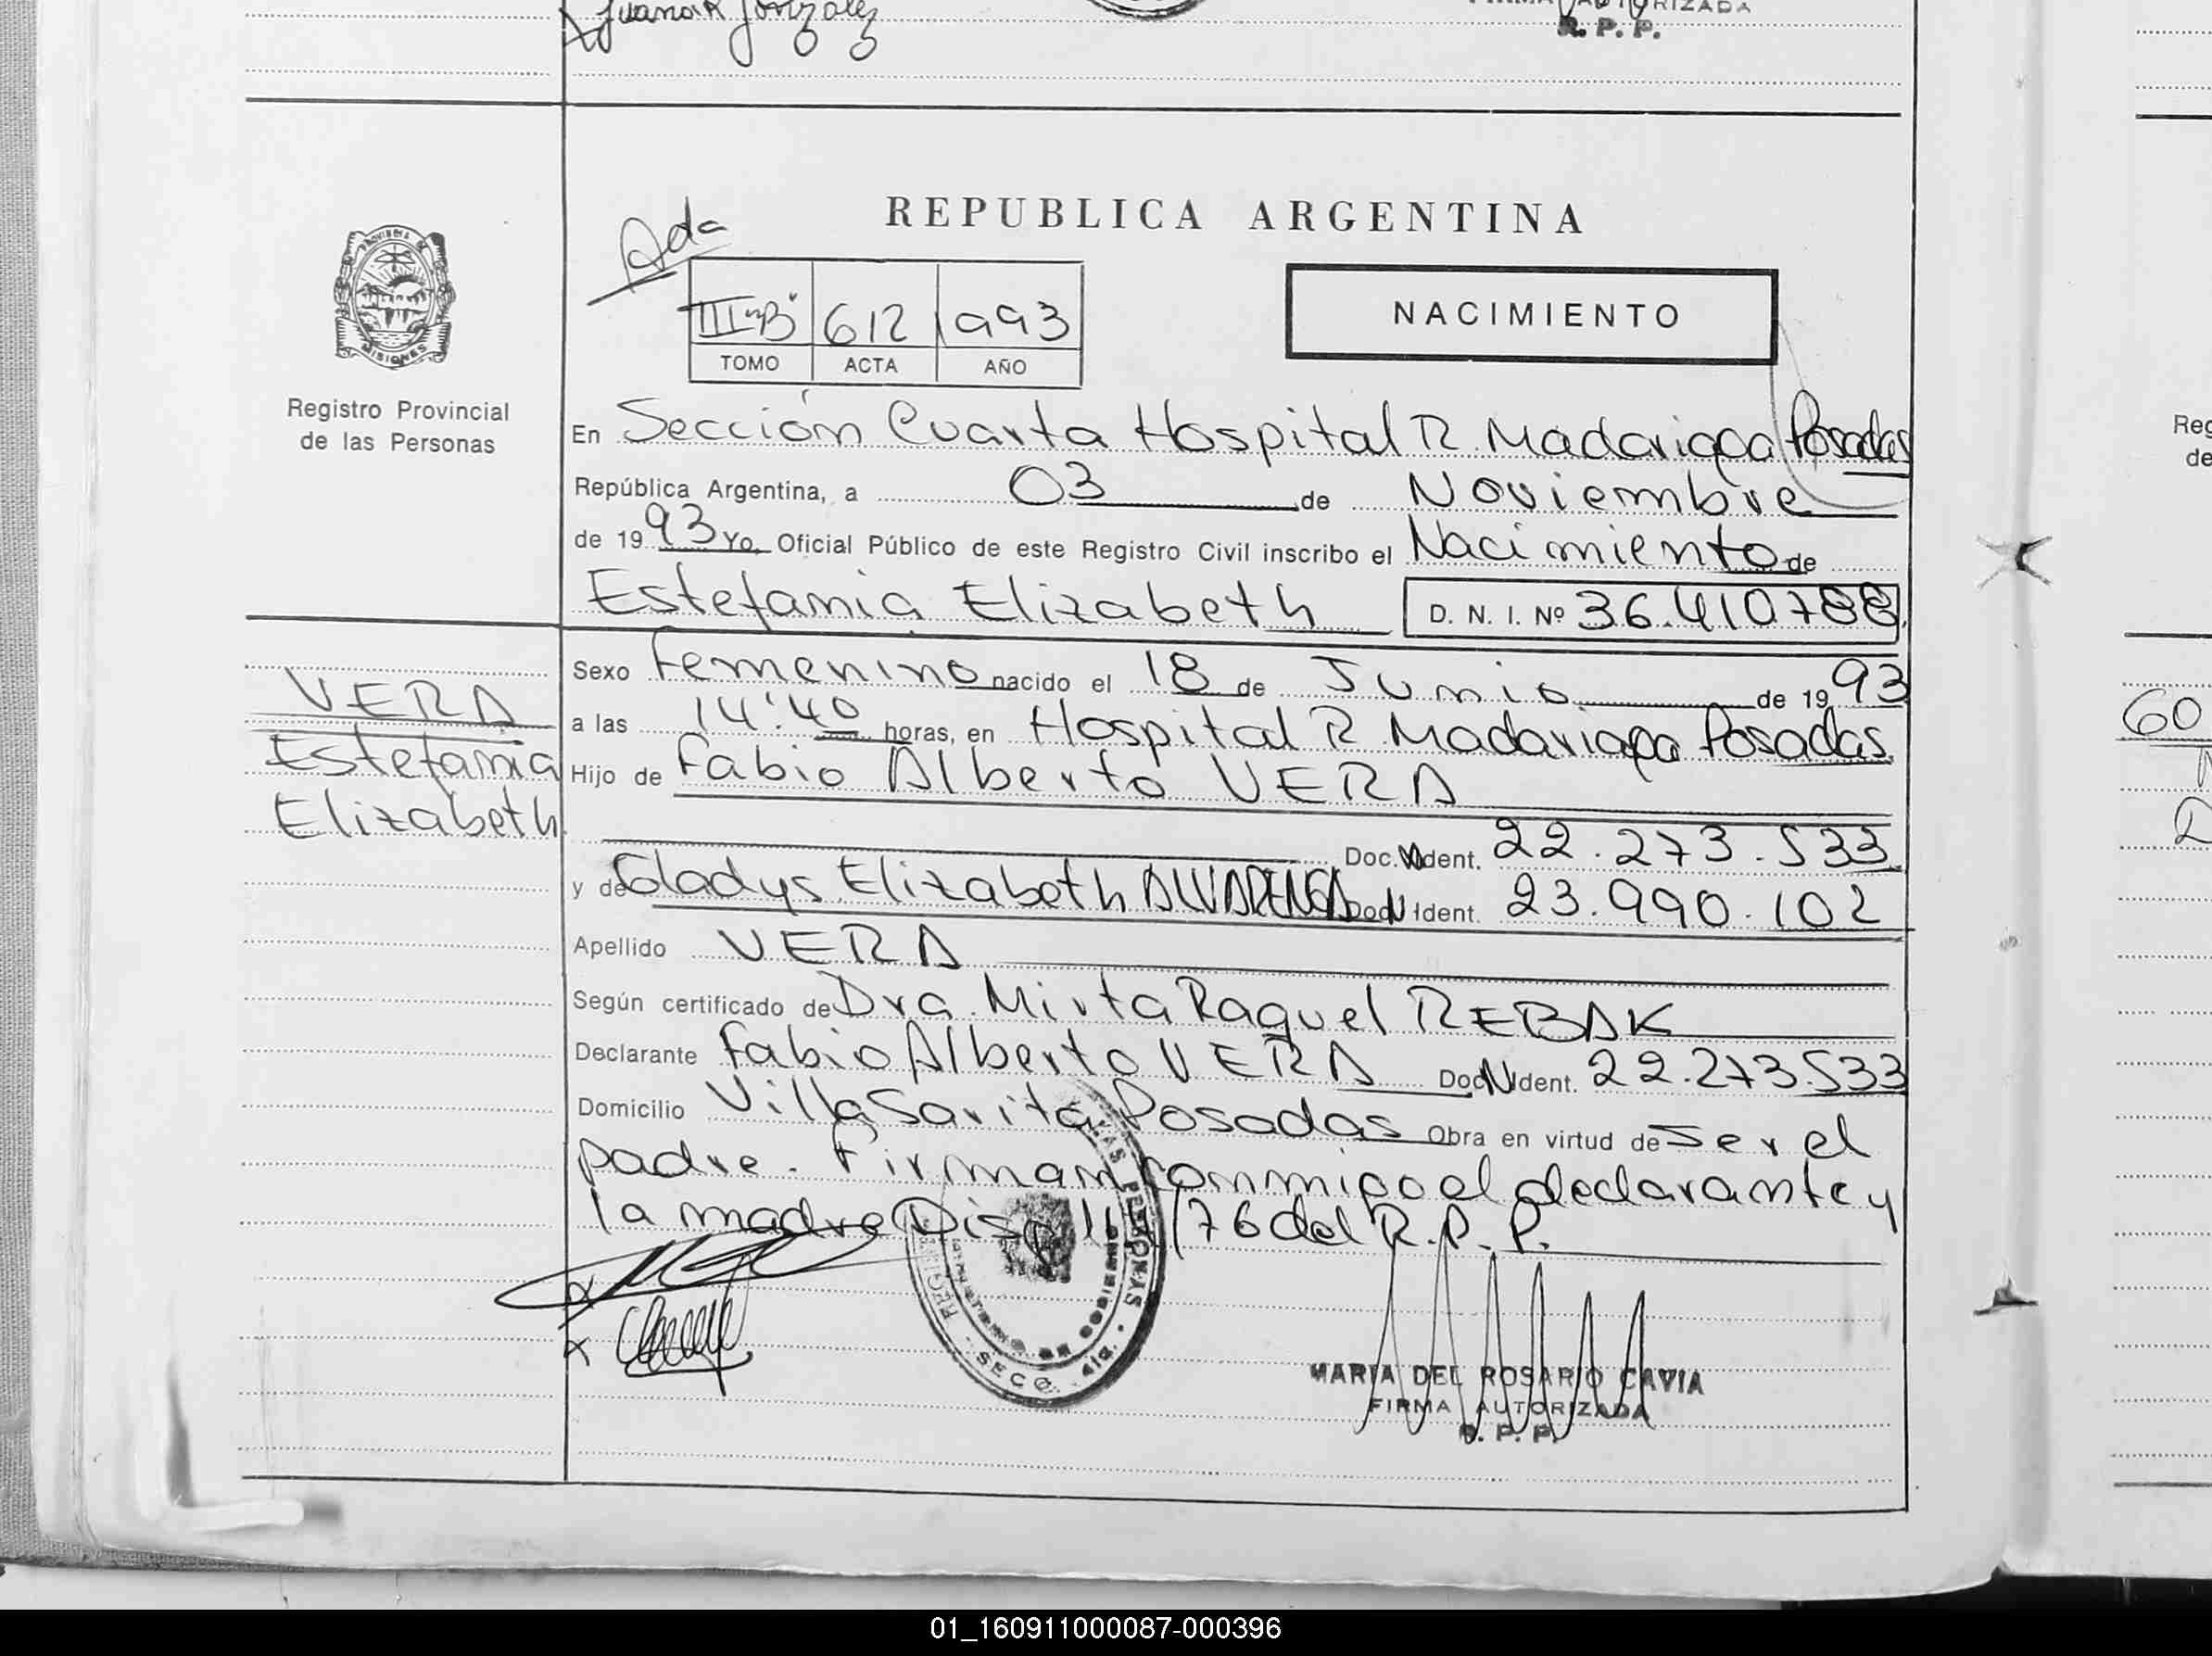 Juana R Gonzalez
FIRMA AUTORIZADA
R. P. P.
PROVINCIA DE
MISIONES
Registro Provincial
de las Personas
REPUBLICA ARGENTINA
Ada
III"B" 612 1993
TOMO ACTA AÑO
NACIMIENTO
En Sección Cuarta Hospital R. Madariaga Posadas
República Argentina, a 03 de Noviembre
de 1993 Yo, Oficial Público de este Registro Civil inscribo el Nacimiento de
Estefania Elizabeth D. N. I. Nº 36.410788
Sexo Femenino nacido el 18 de Junio de 1993
a las 14:40 horas, en Hospital R. Madariaga Posadas.
Hijo de Fabio Alberto VERA
Doc. N Ident. 22.273.533
y de Gladys Elizabeth ALVARENGA Doc N Ident. 23.990.102
Apellido VERA
Según certificado de Dra. Mirta Raquel REBAK
Declarante Fabio Alberto VERA Doc N Ident. 22.273.533
Domicilio Villa Sarita Posadas Obra en virtud de Ser el
padre. Firman conmigo el declarante y
la madre Disp /76 del R.P.P.
VERA
Estefania
Elizabeth
x
x
PERSONAS
SECC. 4ta.
MARIA DEL ROSARIO CAVIA
FIRMA AUTORIZADA
R. P. P.
Reg
de
60
01_160911000087-000396